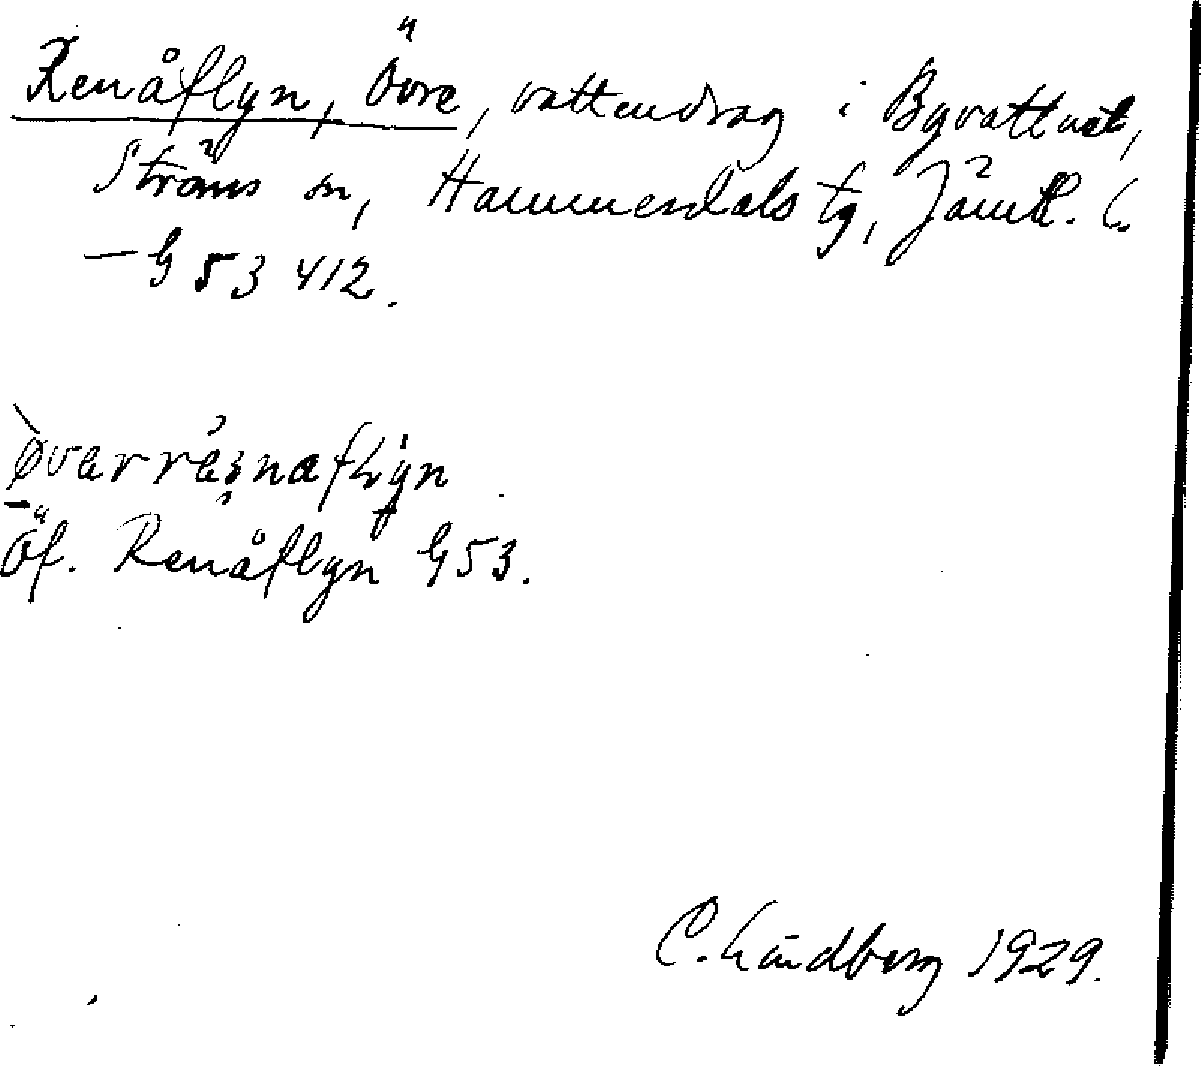 Renåflyn, Övre, vattendrag i Byvattnet,
Ströms sn, Hammerdals tg, Jämtl. l.
— G 53 412.
Øvarrésnaflyn
Öf. Renåflyn G 53.
C. Lindberg 1929.